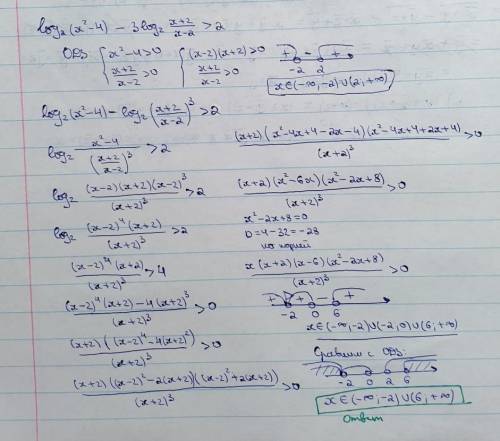 log₂(x²-4) - 3log₂ (x+2)/(x-2) > 2
ОДЗ { x²-4>0 ; (x+2)/(x-2) >0 { (x-2)(x+2)>0 ; (x+2)/(x-2) >0 + - + -2 2
x∈(-∞,-2)∪(2,+∞)
log₂(x²-4) - log₂((x+2)/(x-2))³ > 2
log₂ (x²-4)/((x+2)/(x-2))³ > 2
log₂ (x-2)(x+2)(x-2)³/(x+2)³ > 2
log₂ (x-2)⁴(x+2)/(x+2)³ > 2
(x-2)⁴(x+2)/(x+2)³ > 4
((x-2)⁴(x+2) - 4(x+2)³)/(x+2)³ > 0
(x+2)((x-2)⁴ - 4(x+2)²)/(x+2)³ > 0
(x+2)((x-2)² - 2(x+2))((x-2)² + 2(x+2))/(x+2)³ > 0
(x+2)(x²-4x+4-2x-4)(x²-4x+4+2x+4)/(x+2)³ > 0
(x+2)(x²-6x)(x²-2x+8)/(x+2)³ > 0
x²-2x+8=0
D=4-32=-28
нет корней
x(x+2)(x-6)(x²-2x+8)/(x+2)³ > 0
+ + - + -2 0 6
x∈(-∞,-2)∪(-2,0)∪(6,+∞)
Сравним с ОДЗ:
-2 0 2 6
x∈(-∞,-2)∪(6,+∞)
Ответ